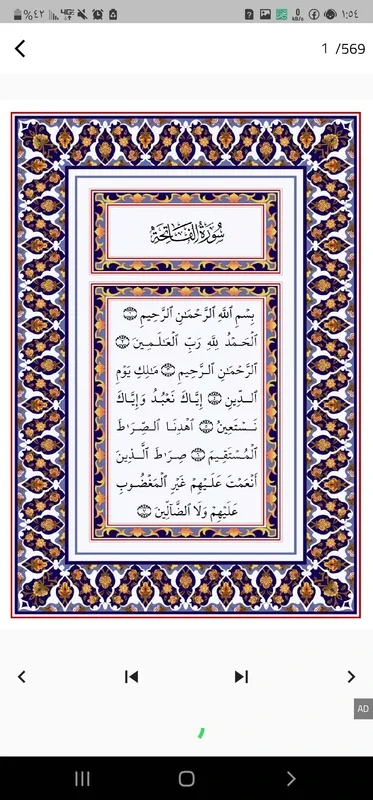 %٤٢
١:٥٤
0 KB/s
1 /569
سُورَةُ الفَاتِحَةِ
بِسْمِ ٱللَّهِ ٱلرَّحْمَـٰنِ ٱلرَّحِيمِ ۝١
ٱلْحَمْدُ لِلَّهِ رَبِّ ٱلْعَـٰلَمِينَ ۝٢
ٱلرَّحْمَـٰنِ ٱلرَّحِيمِ ۝٣ مَـٰلِكِ يَوْمِ
ٱلدِّينِ ۝٤ إِيَّاكَ نَعْبُدُ وَإِيَّاكَ
نَسْتَعِينُ ۝٥ ٱهْدِنَا ٱلصِّرَٰطَ
ٱلْمُسْتَقِيمَ ۝٦ صِرَٰطَ ٱلَّذِينَ
أَنْعَمْتَ عَلَيْهِمْ غَيْرِ ٱلْمَغْضُوبِ
عَلَيْهِمْ وَلَا ٱلضَّآلِّينَ ۝٧
AD